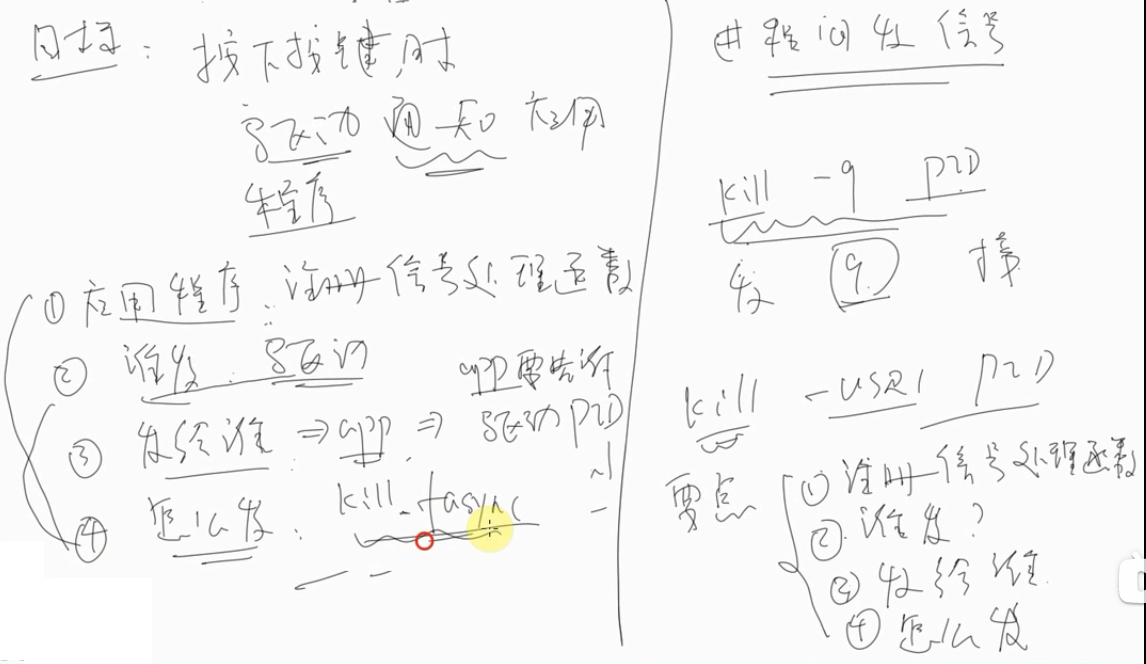 目标：按下按键时
驱动 通知 应用
程序
① 应用程序：注册信号处理函数
② 谁发：驱动
app要告诉
③ 发给谁 ⇒ app ⇒ 驱动PID
④ 怎么发：kill_fasync
进程间发信号
kill -9 PID
发 9 接
kill -USR1 PID
要点
① 注册信号处理函数
② 谁发?
③ 发给谁
④ 怎么发